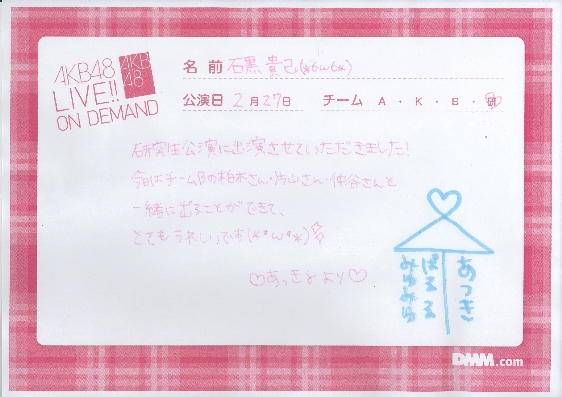 AKB48
LIVE!!
ON DEMAND
AKB
48
名前 石黒 貴己(*ゝω・*)
公演日 2月27日 チーム A・K・B・研
研究生公演に出演させていただきました!
今日はチームBの柏木さん・片山さん・仲谷さんと
一緒に出ることができて、
とてもうれしいです(*・ω・*)
♡あっきよより♡
あつき
ぱるる
みゆみゆ
DMM.com